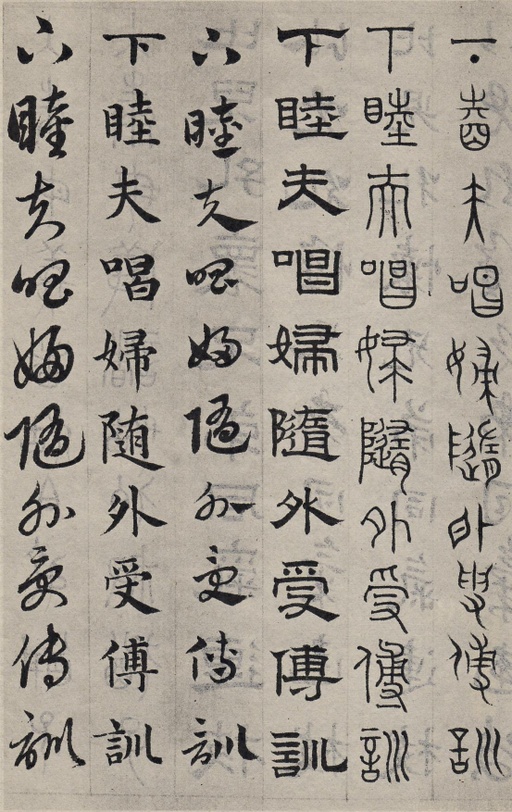 下睦夫唱婦隨外受傅訓
下睦夫唱婦隨外受傅訓
下睦夫唱婦隨外受傅訓
下睦夫唱婦隨外受傅訓
下睦夫唱婦随外受傅訓
下睦夫唱婦隨外受傅訓